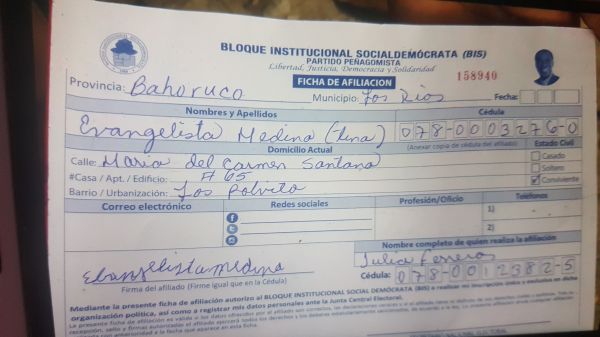 BLOQUE INSTITUCIONAL SOCIALDEMÓCRATA (BIS)
PARTIDO PEÑAGOMISTA
Libertad, Justicia, Democracia y Solidaridad
FICHA DE AFILIACION
158940
Provincia: Bahoruco Municipio: Los Rios Fecha:
Nombres y Apellidos Cédula
Evangelista Medina (Lina) 078-0003276-0
(Anexar copia de cédula del afiliado)
Domicilio Actual Estado Civil
Calle: Maria del Carmen Santana Casado
#Casa / Apt. / Edificio: # 65 Soltero
Barrio / Urbanización: Los Polvito Conviviente
Correo electrónico Redes sociales Profesión/Oficio Teléfonos
1)
2)
Nombre completo de quien realiza la afiliación
Julia Ferreras
Evangelista medina
Firma del afiliado (Firme igual que en la Cédula) Cédula: 078-0012382-5
Mediante la presente ficha de afiliación autorizo al BLOQUE INSTITUCIONAL SOCIAL DEMÓCRATA (BIS) a realizar mi inscripción única y exclusiva en dicha
organización política, así como a registrar mis datos personales ante la Junta Central Electoral.